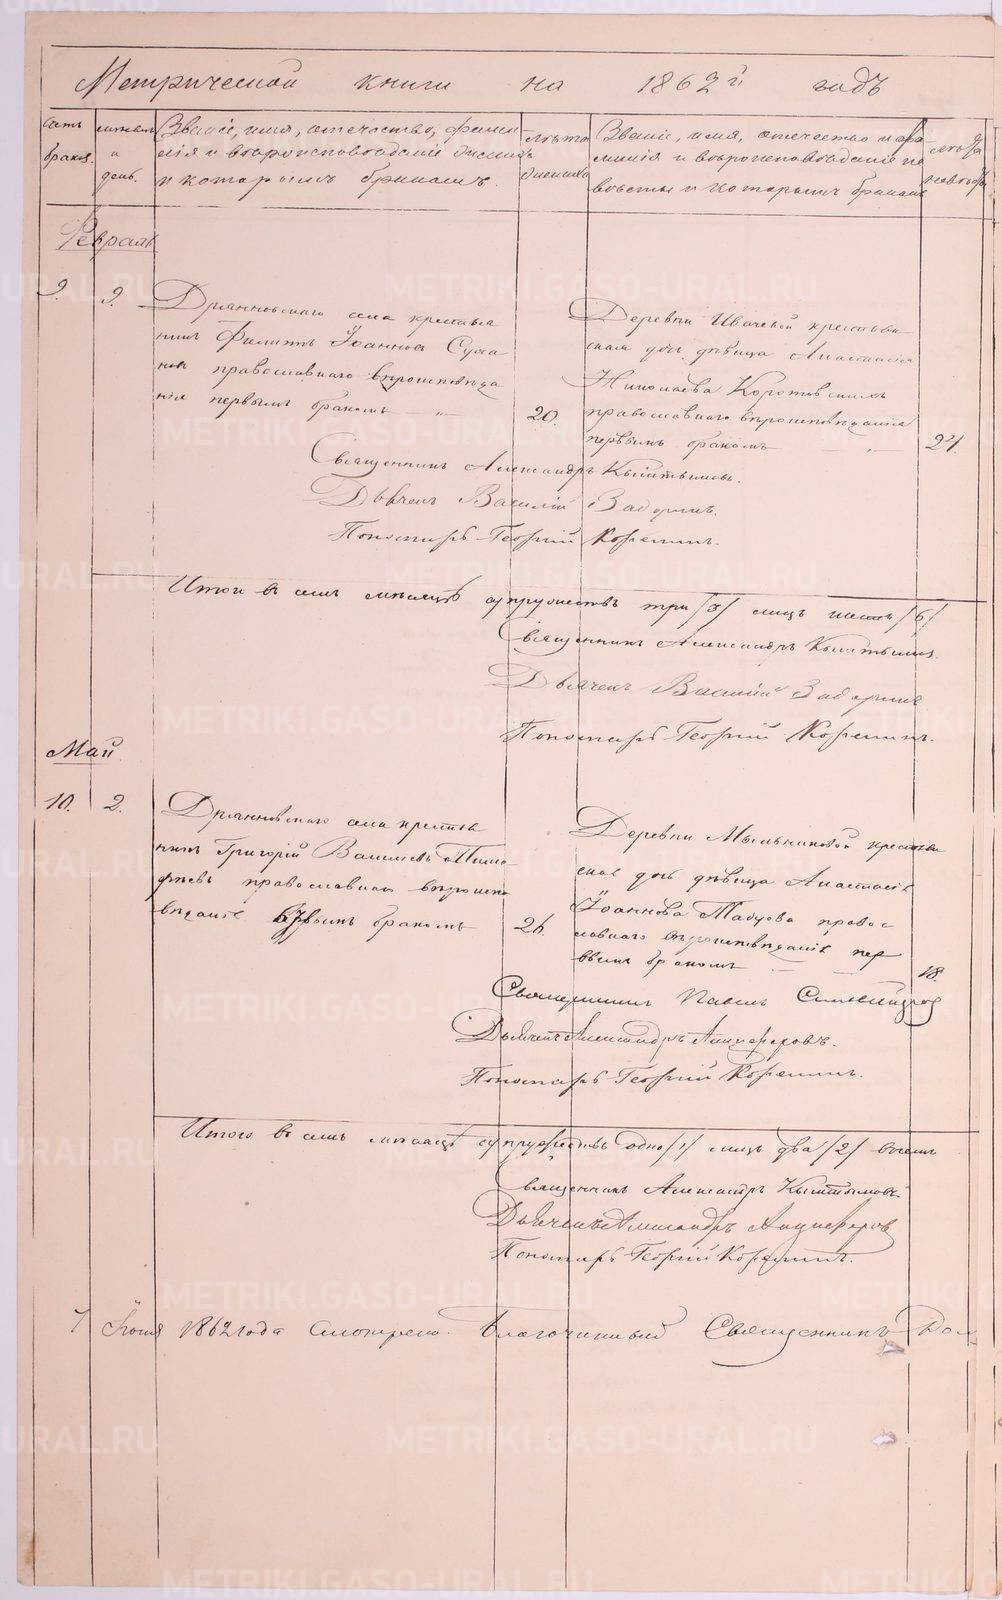 Метрической книги на 1862й годъ
Счетъ браков.
мѣсяцъ и день.
Званіе, имя, отечество, фами
лія и вѣроисповѣданіе жениха
и которымъ бракомъ.
лѣта жениха
Званіе, имя, отечество и фа-
милія и вѣроисповѣданіе не
вѣсты и которымъ бракомъ
лѣта невѣсты
Февраль
9. 9.
села крестья
нинъ Филиппъ Іоанновъ
православнаго вѣроисповѣда
нія первымъ бракомъ 20.
Деревни крестьян
ская дочь дѣвица Анастасія
Николаева
православнаго вѣроисповѣданія
первымъ бракомъ 21.
Священникъ Александръ Кыштымовъ.
Дьячекъ Василій Задоринъ.
Пономарь Георгій Корелинъ.
Итого въ семъ мѣсяцѣ супружествъ три /3/ лицъ шесть /6/
Священникъ Александръ Кыштымовъ.
Дьячекъ Василій Задоринъ
Пономарь Георгій Корелинъ.
Май
10. 2.
села крестья
нинъ Григорій Васильевъ
православнаго вѣроиспо
вѣданія первымъ бракомъ 26.
Деревни Мыльниковой крестьян
ская дочь дѣвица Анастасія
Іоаннова правос
лавнаго вѣроисповѣданія пер
вымъ бракомъ 18.
Священникъ Павелъ
Дьячекъ Александръ Анциферовъ.
Пономарь Георгій Корелинъ.
Итого въ семъ мѣсяцѣ супружествъ одно /1/ лицъ два /2/
Священникъ Александръ Кыштымовъ
Дьячекъ Александръ Анциферов
Пономарь Георгій Корелинъ.
7 Іюня 1862 года смотрено. Благочинный Священникъ
METRIKI.GASO-URAL.RU